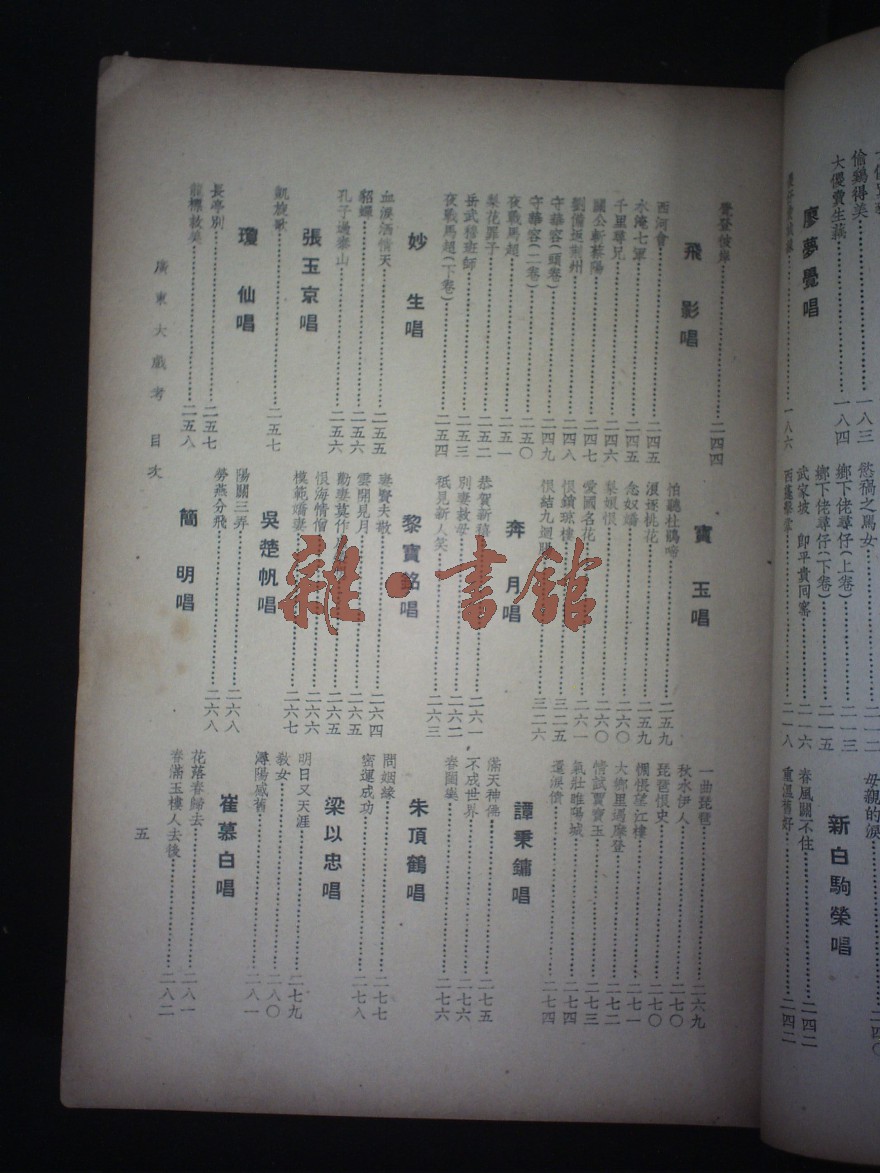 廖夢覺唱
大儍賣生藕……一八四
偷鷄得美……一八三
鄉下佬尋仔(上卷)……二一三
鄉下佬尋仔(下卷)……二一五
武家坡 即平貴回窰……二一六
母親的淚……二四〇
新白駒榮唱
春風關不住……二四二
重溫舊好……二四二
覺登彼岸……二四四
飛影唱
西河會……二四五
水淹七軍……二四五
千里尋兄……二四六
關公斬蔡陽……二四七
劉備返荊州……二四八
守華容(頭卷)……二四九
守華容(二卷)……二五〇
夜戰馬超……二五一
梨花罪子……二五二
岳武穆班師……二五三
夜戰馬超(下卷)……二五四
妙生唱
血淚洒情天……二五五
貂蟬……二五六
孔子過泰山……二五六
張玉京唱
凱旋歌……二五七
瓊仙唱
長亭別……二五七
……二五八
寶玉唱
怕聽杜鵑啼……二五九
須逐桃花……二五九
念奴嬌……二六〇
梨娘恨……二六〇
愛國名花……二六一
恨鎖瓊樓……三二五
恨結九迴……三二六
奔月唱
恭賀新禧……二六一
別妻救母……二六二
祗見新人笑……二六三
黎寶銘唱
妻賢夫敬……二六四
雲開見月……二六五
勸妻莫作……二六五
恨海情僧……二六六
模範嬌妻……二六七
吳楚帆唱
陽關三弄……二六八
勞燕分飛……二六八
簡明唱
一曲琵琶……二六九
秋水伊人……二七〇
琵琶恨史……二七〇
惆悵望江樓……二七一
大鄉里遇摩登……二七二
情試賈寶玉……二七三
氣壯睢陽城……二七四
還淚債……二七四
譚秉鏞唱
滿天神佛……二七五
不成世界……二七六
春閨樂……二七六
朱頂鶴唱
問姻緣……二七七
密運成功……二七八
梁以忠唱
明日又天涯……二七九
教女……二八〇
潯陽感舊……二八一
崔慕白唱
花落春歸去……二八一
春滿玉樓人去後……二八二
廣東大戲考 目次
五
雜·書館